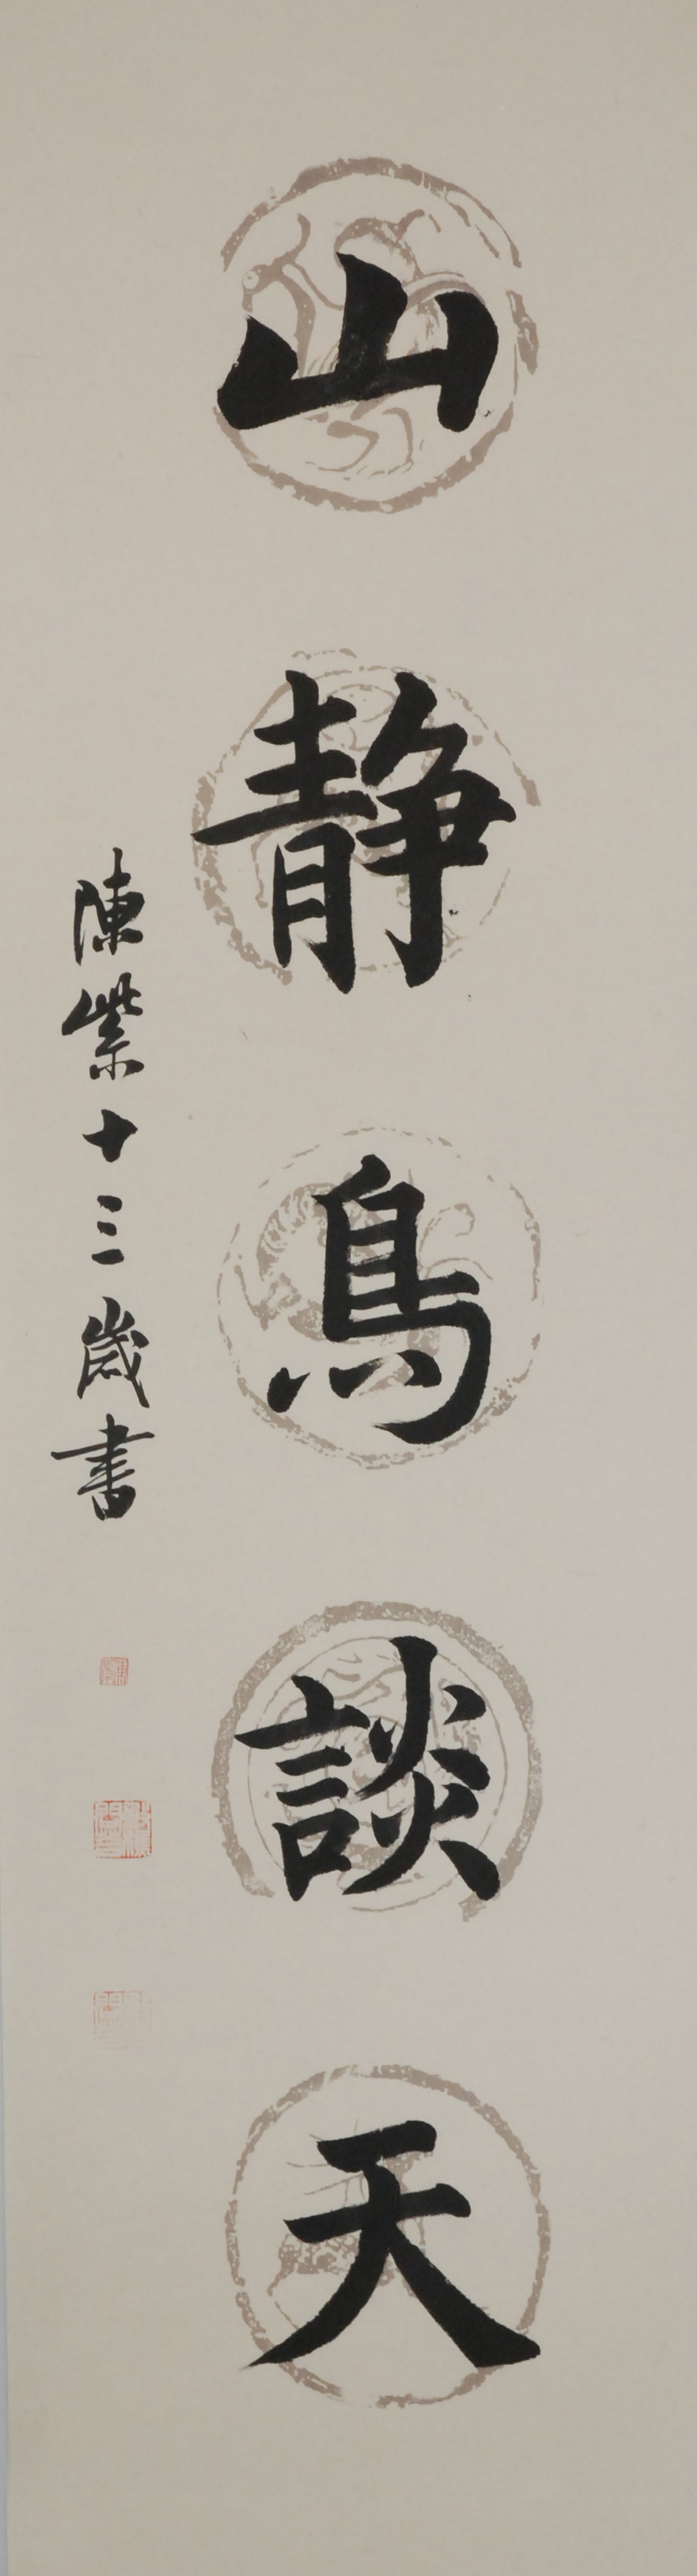 山静鳥談天
陳紫十三歲書